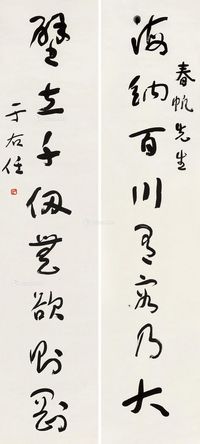 海納百川有容乃大
春帆先生
壁立千仞無欲則剛
于右任